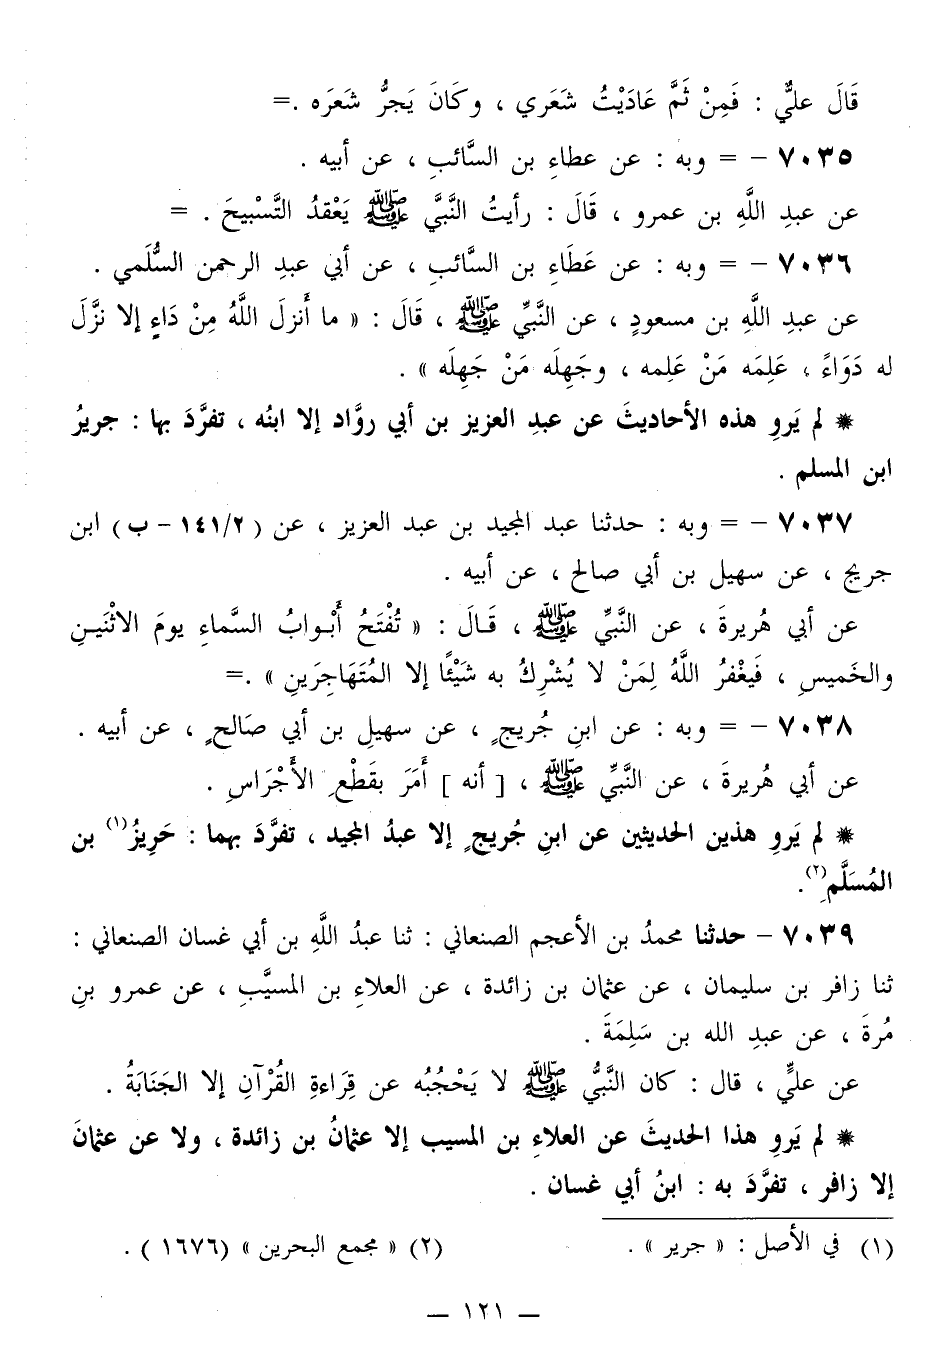 قَالَ عليٌّ : فَمِنْ ثَمَّ عَادَيْتُ شعَري ، وكَانَ يَجزُّ شعَره .=
٧٠٣٥ - = وبه : عن عطاءِ بن السَّائبِ ، عن أبيه .
عن عبدِ اللَّهِ بن عمرو ، قَالَ : رأيتُ النَّبيَّ ﷺ يَعْقدُ التَّسْبيحَ . =
٧٠٣٦ - = وبه : عن عَطَاءِ بن السَّائبِ ، عن أبي عبدِ الرحمن السُّلَمي .
عن عبدِ اللَّهِ بن مسعودٍ ، عن النَّبيِّ ﷺ ، قَالَ : « ما أَنزلَ اللَّهُ مِنْ دَاءٍ إلا نزَّلَ
له دَوَاءً ، عَلِمَه مَنْ عَلِمه ، وجَهِلَه مَنْ جَهِلَه » .
* لم يَروِ هذه الأحاديثَ عن عبدِ العزيز بن أبي روَّاد إلا ابنُه ، تفرَّدَ بها : جريرُ
ابن المسلم .
٧٠٣٧ - = وبه : حدثنا عبد المجيد بن عبد العزيز ، عن ( ١٤١/٢ - ب ) ابن
جريج ، عن سهيل بن أبي صالح ، عن أبيه .
عن أبي هُريرةَ ، عن النَّبيِّ ﷺ ، قَـالَ : « تُفْتَحُ أَبْـوابُ السَّماءِ يومَ الاثْنَيـنِ
والخَميسِ ، فَيغْفرُ اللَّهُ لِمَنْ لا يُشْرِكُ به شَيْئًا إلا المُتَهَاجِرَينِ » .=
٧٠٣٨ - = وبه : عن ابنِ جُريجٍ ، عن سهيلِ بن أبي صَالحٍ ، عن أبيه .
عن أبي هُريرةَ ، عن النَّبيِّ ﷺ ، [ أنه ] أَمَرَ بقَطْعِ الأَجْرَاسِ .
* لم يَروِ هذين الحديثين عن ابنِ جُريجٍ إلا عبدُ المجيد ، تفرَّدَ بهما : حَرِيزُ(١) بن
المُسَلَّمِ(٢).
٧٠٣٩ - حدثنا محمدُ بن الأعجم الصنعاني : ثنا عبدُ اللَّهِ بن أبي غسان الصنعاني :
ثنا زافر بن سليمان ، عن عثمان بن زائدة ، عن العلاءِ بن المسيَّبِ ، عن عمرو بنِ
مُرةَ ، عن عبدِ الله بن سَلِمَةَ .
عن عليٍّ ، قال : كان النَّبيُّ ﷺ لا يَحْجُبُه عن قِرَاءةِ القُرْآنِ إلا الجَنَابَةُ .
* لم يَروِ هذا الحديثَ عن العلاءِ بن المسيب إلا عثمانُ بن زائدة ، ولا عن عثمانَ
إلا زافر ، تفرَّدَ به : ابنُ أبي غسان .
(١) في الأصل : « جرير » . (٢) « مجمع البحرين » (١٦٧٦) .
— ١٢١ —